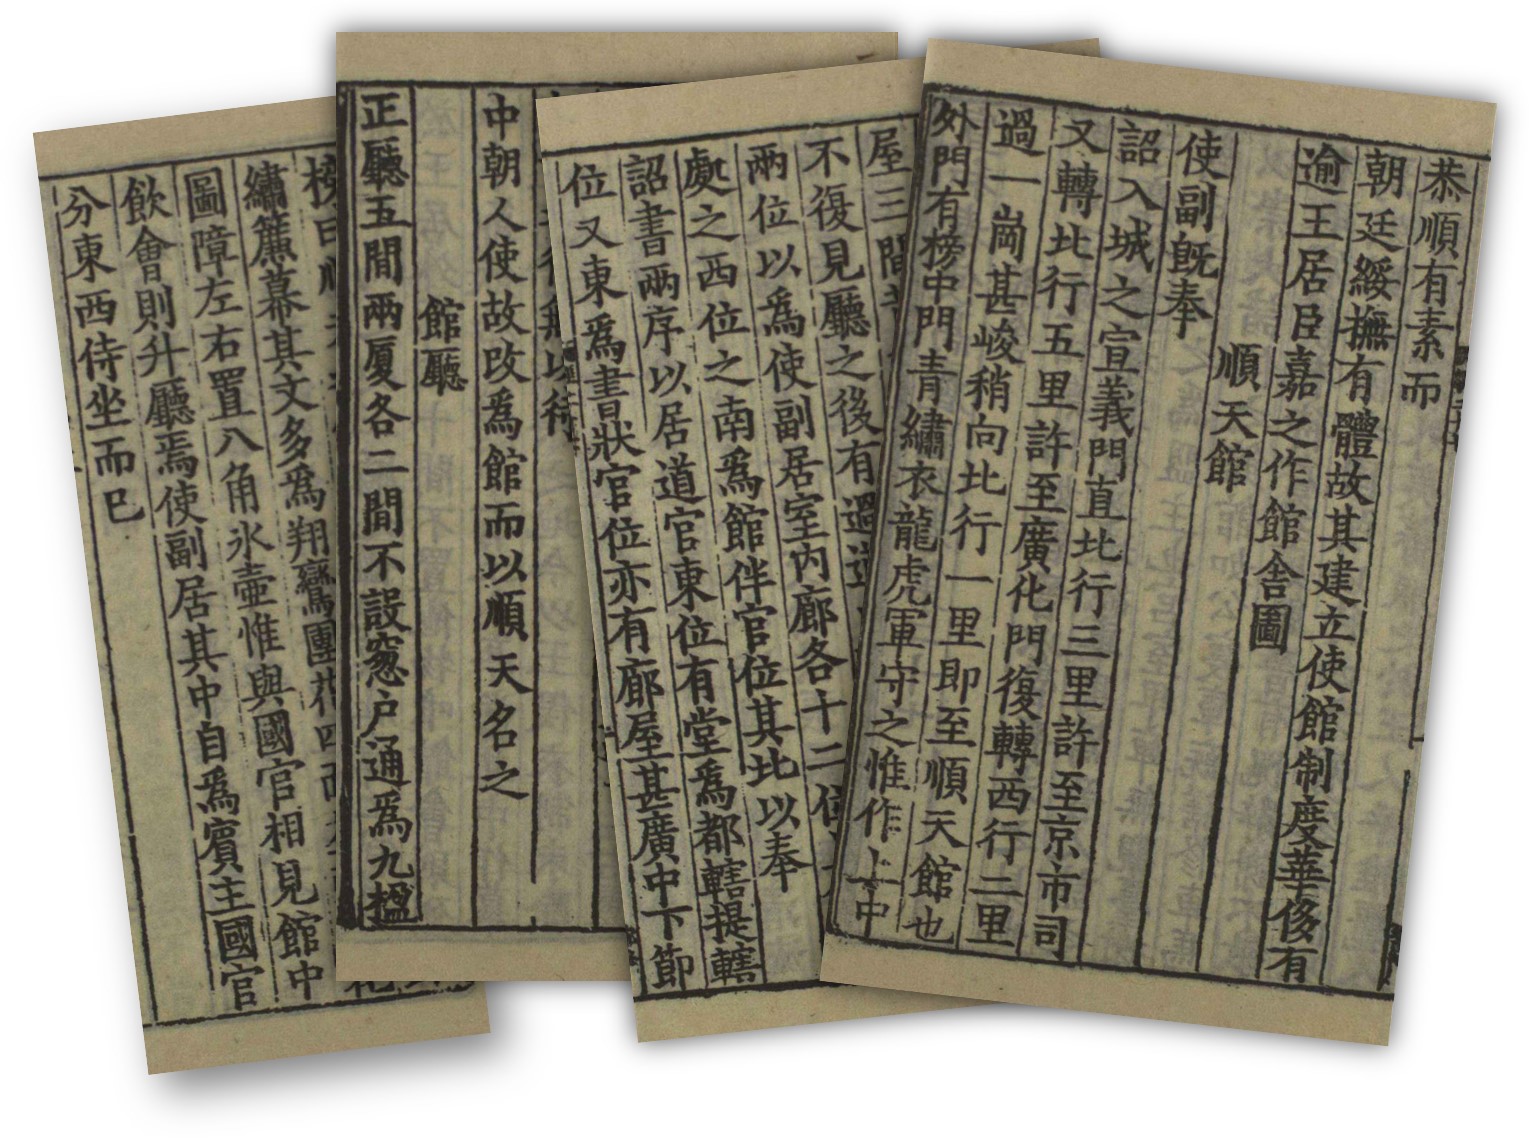 恭順有素而
朝廷綏撫有體故其建立使館制度華侈有
逾王居臣嘉之作館舍圖
順天館
使副旣奉
詔入城之宣義門直北行三里許至京市司
又轉北行五里許至廣化門復轉西行二里
過一崗甚峻稍向北行一里即至順天館也
外門有榜中門青繡衣龍虎軍守之惟作上中
屋三間
不復見廳之後有過道
兩位以爲使副居室内廊各十二位
處之西位之南爲館伴官位其北以奉
詔書兩序以居道官東位有堂爲都轄提轄
位又東爲書狀官位亦有廊屋甚廣中下節
以待
中朝人使故改爲館而以順天名之
館廳
正廳五間兩厦各二間不設窓戶通爲九楹
榜曰順
繡簾幕其文多爲翔鸞團花四面
圖障左右置八角氷壺惟與國官相見館中
飲會則升廳焉使副居其中自爲賓主國官
分東西侍坐而已